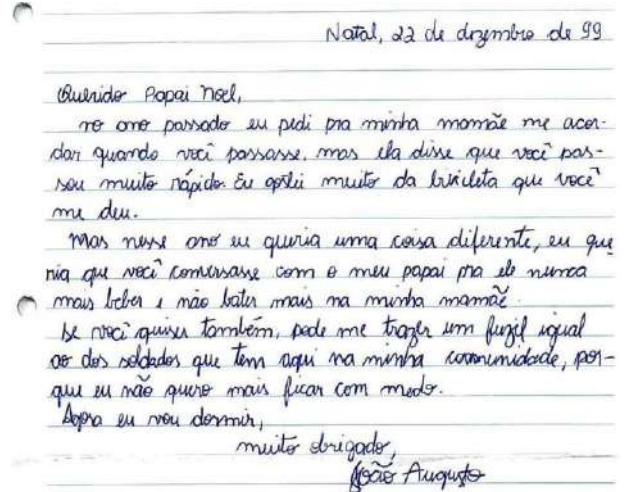 Natal, 22 de dezembro de 99
Querido Papai Noel,
no ano passado eu pedi pra minha mamãe me acor-
dar quando você passasse, mas ela disse que você pas-
sou muito rápido. Eu gostei muito da bicicleta que você
me deu.
Mas nesse ano eu queria uma coisa diferente, eu que
ria que você conversasse com o meu papai pra ele nunca
mais beber e não bater mais na minha mamãe.
Se você quiser também, pode me trazer um fuzil igual
ao dos soldados que tem aqui na minha comunidade, por-
que eu não quero mais ficar com medo.
Agora eu vou dormir,
muito obrigado,
João Augusto